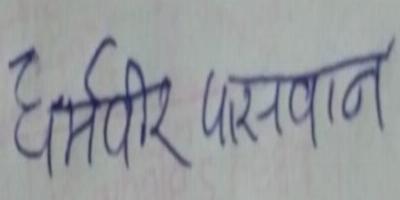 धर्मवीर पासवान